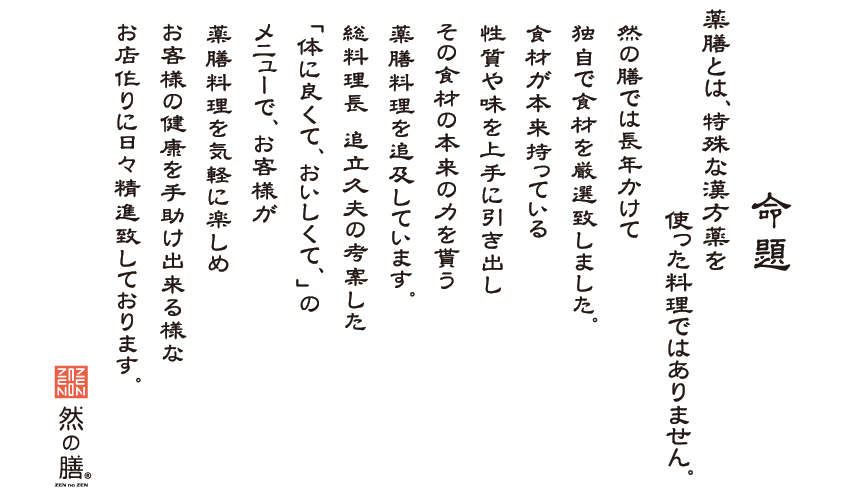 命題
薬膳とは、特殊な漢方薬を
使った料理ではありません。
然の膳では長年かけて
独自で食材を厳選致しました。
食材が本来持っている
性質や味を上手に引き出し
その食材の本来の力を貰う
薬膳料理を追及しています。
総料理長 追立久夫の考案した
「体に良くて、おいしくて、」の
メニューで、お客様が
薬膳料理を気軽に楽しめ
お客様の健康を手助け出来る様な
お店作りに日々精進致しております。
ZEN
ZEN
NON
然の膳®
ZEN no ZEN